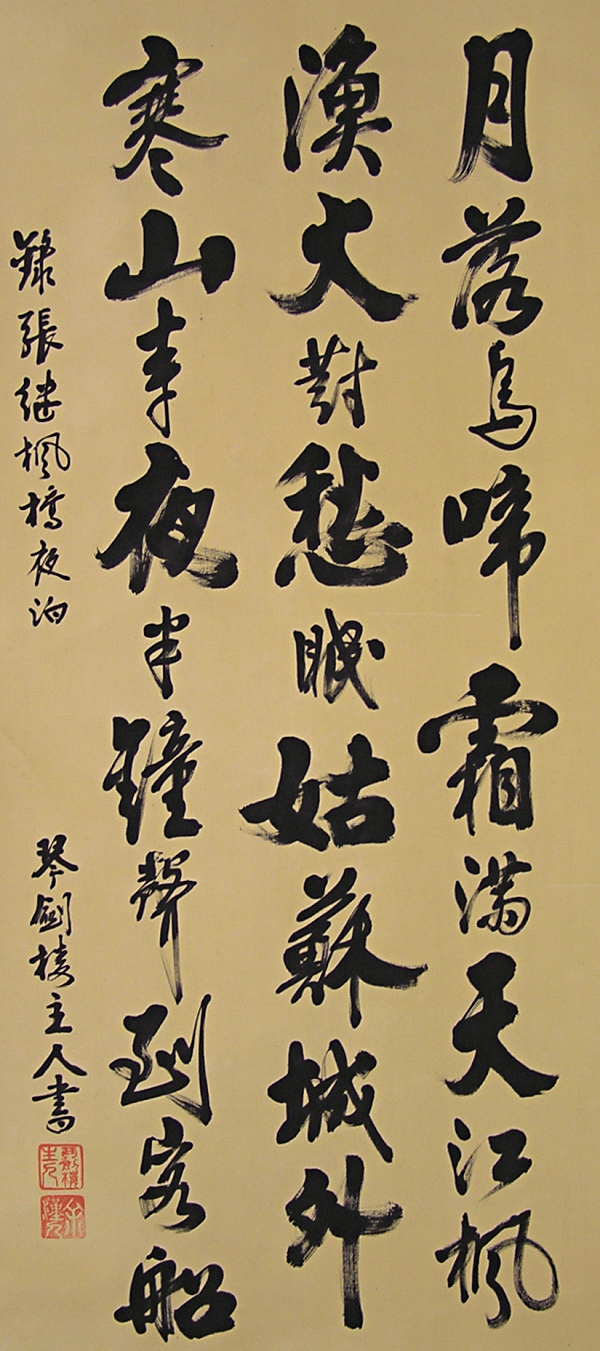 月落烏啼霜滿天江楓
漁火對愁眠姑蘇城外
寒山寺夜半鐘聲到客船
錄張継楓橋夜泊
琴劍樓主人書
琴劍樓主人